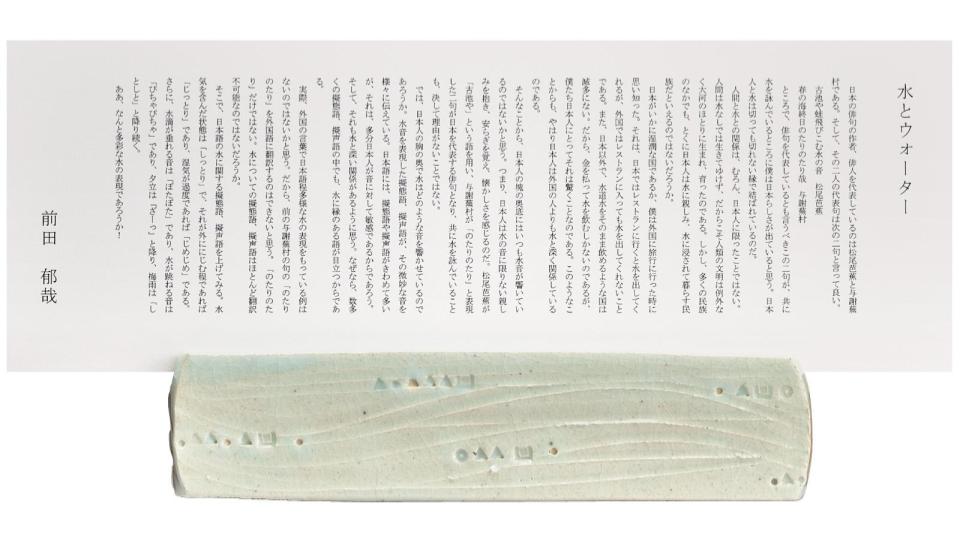 水とウォーター
日本の俳句の作者、俳人を代表しているのは松尾芭蕉と与謝蕪
村である。そして、その二人の代表句は次の二句と言って良い。
古池や蛙飛びこむ水の音　松尾芭蕉
春の海終日のたりのたり哉　与謝蕪村
ところで、俳句を代表しているとも言うべきこの二句が、共に
水を詠んでいるところに僕は日本らしさが出ていると思う。日本
人と水は切っても切れない縁で結ばれているのだ。
人間と水との関係は、むろん、日本人に限ったことではない。
人間は水なしでは生きてゆけず、だからこそ人類の文明は例外な
く大河のほとりに生まれ、育ったのである。しかし、多くの民族
のなかでも、とくに日本人は水に親しみ、水に浸されて暮らす民
族だといえるのではないだろうか。
日本がいかに湿潤な国であるか、僕は外国に旅行に行った時に
思い知った。それは、日本ではレストランに行くと水を出してく
れるが、外国ではレストランに入っても水を出してくれないこと
である。また、日本以外で、水道水をそのまま飲めるような国は
滅多にない。だから、金を払って水を飲むしかないのであるが、
僕たち日本人にとってそれは驚くことなのである。このようなこ
とからも、やはり日本人は外国の人よりも水と深く関係している
のである。
そんなことから、日本人の魂の奥底にはいつも水音が響いてい
るのではないかと思う。つまり、日本人は水の音に限りない親し
みを抱き、安らぎを覚え、懐かしさを感じるのだ。松尾芭蕉が
「古池や」という語を用い、与謝蕪村が「のたりのたり」と表現
した二句が日本を代表する俳句となり、共に水を詠んでいること
も、決して理由がないことではない。
では、日本人の胸の奥で水はどのような音を響かせているので
あろうか。水音を表現した擬態語、擬声語が、その微妙な音を
様々に伝えている。日本語には、擬態語や擬声語がきわめて多い
が、それは、多分日本人が音に対して敏感であるからであろう。
そして、それも水と深い関係があるように思う。なぜなら、数多
くの擬態語、擬声語の中でも、水に縁のある語が目立つからであ
る。
実際、外国の言葉で日本語程多様な水の表現をもっている例は
ないのではないかと思う。だから、前の与謝蕪村の句の「のたり
のたり」を外国語に翻訳するのはできないと思う。「のたりのた
り」だけではない。水についての擬態語、擬声語はほとんど翻訳
不可能なのではないだろうか。
そこで、日本語の水に関する擬態語、擬声語を上げてみる。水
気を含んだ状態は「しっとり」で、それが外ににじむ程であれば
「じっとり」であり、湿気が過度であれば「じめじめ」である。
さらに、水滴が垂れる音は「ぽたぽた」であり、水が跳ねる音は
「ぴちゃぴちゃ」であり、夕立は「ざーっ」と降り、梅雨は「し
としと」と降り続く。
ああ、なんと多彩な水の表現であろうか！
前田　郁哉